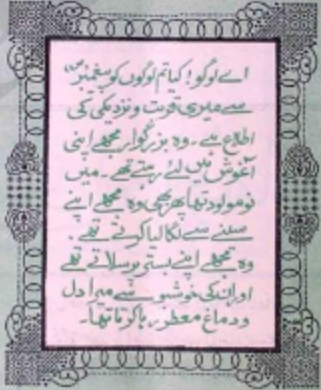 اے لوگو! کیا تم لوگوں کو پیغمبرؐ
سے میری قربت و نزدیکی کی
اطلاع ہے۔ وہ بزرگوار مجھے اپنی
آغوش میں لئے رہتے تھے۔ میں
نومولود تھا پھر بھی وہ مجھے اپنے
سینے سے لگا لیا کرتے تھے۔
وہ مجھے اپنے بستر پر سلاتے تھے
اور ان کی خوشبو سے میرا دل
و دماغ معطر رہا کرتا تھا۔